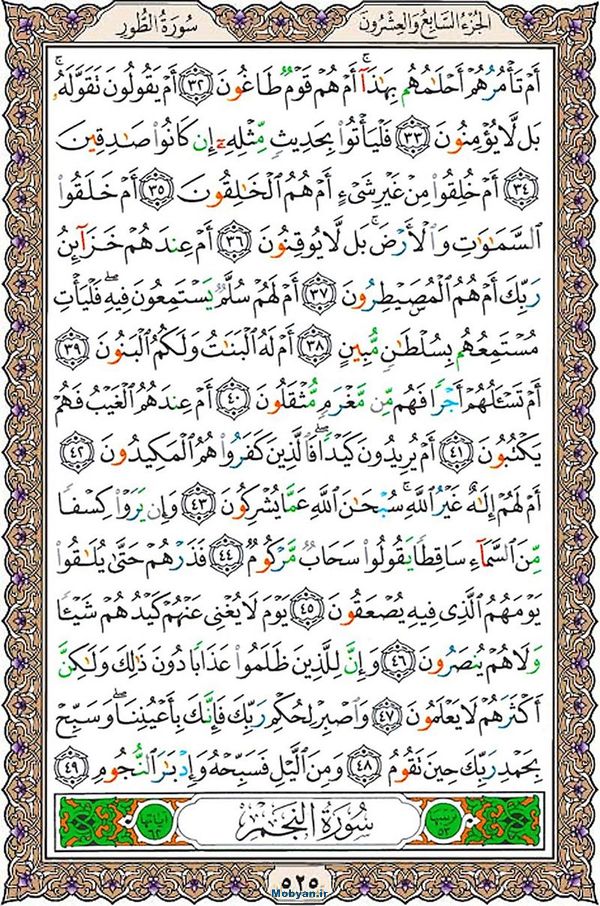 الجزء السابع والعشرون
سورة الطور
أَمْ تَأْمُرُهُمْ أَحْلَٰمُهُم بِهَٰذَآ ۚ أَمْ هُمْ قَوْمٌ طَاغُونَ ٣٢ أَمْ يَقُولُونَ تَقَوَّلَهُۥ ۚ
بَل لَّا يُؤْمِنُونَ ٣٣ فَلْيَأْتُوا۟ بِحَدِيثٍ مِّثْلِهِۦٓ إِن كَانُوا۟ صَٰدِقِينَ
٣٤ أَمْ خُلِقُوا۟ مِنْ غَيْرِ شَىْءٍ أَمْ هُمُ ٱلْخَٰلِقُونَ ٣٥ أَمْ خَلَقُوا۟
ٱلسَّمَٰوَٰتِ وَٱلْأَرْضَ ۚ بَل لَّا يُوقِنُونَ ٣٦ أَمْ عِندَهُمْ خَزَآئِنُ
رَبِّكَ أَمْ هُمُ ٱلْمُصَۣيْطِرُونَ ٣٧ أَمْ لَهُمْ سُلَّمٌ يَسْتَمِعُونَ فِيهِ ۖ فَلْيَأْتِ
مُسْتَمِعُهُم بِسُلْطَٰنٍ مُّبِينٍ ٣٨ أَمْ لَهُ ٱلْبَنَٰتُ وَلَكُمُ ٱلْبَنُونَ ٣٩
أَمْ تَسْـَٔلُهُمْ أَجْرًا فَهُم مِّن مَّغْرَمٍ مُّثْقَلُونَ ٤٠ أَمْ عِندَهُمُ ٱلْغَيْبُ فَهُمْ
يَكْتُبُونَ ٤١ أَمْ يُرِيدُونَ كَيْدًا ۖ فَٱلَّذِينَ كَفَرُوا۟ هُمُ ٱلْمَكِيدُونَ ٤٢
أَمْ لَهُمْ إِلَٰهٌ غَيْرُ ٱللَّهِ ۚ سُبْحَٰنَ ٱللَّهِ عَمَّا يُشْرِكُونَ ٤٣ وَإِن يَرَوْا۟ كِسْفًا
مِّنَ ٱلسَّمَآءِ سَاقِطًا يَقُولُوا۟ سَحَابٌ مَّرْكُومٌ ٤٤ فَذَرْهُمْ حَتَّىٰ يُلَٰقُوا۟
يَوْمَهُمُ ٱلَّذِى فِيهِ يُصْعَقُونَ ٤٥ يَوْمَ لَا يُغْنِى عَنْهُمْ كَيْدُهُمْ شَيْـًٔا
وَلَا هُمْ يُنصَرُونَ ٤٦ وَإِنَّ لِلَّذِينَ ظَلَمُوا۟ عَذَابًا دُونَ ذَٰلِكَ وَلَٰكِنَّ
أَكْثَرَهُمْ لَا يَعْلَمُونَ ٤٧ وَٱصْبِرْ لِحُكْمِ رَبِّكَ فَإِنَّكَ بِأَعْيُنِنَا ۖ وَسَبِّحْ
بِحَمْدِ رَبِّكَ حِينَ تَقُومُ ٤٨ وَمِنَ ٱلَّيْلِ فَسَبِّحْهُ وَإِدْبَٰرَ ٱلنُّجُومِ ٤٩
ترتيبها ٥٣ سورة النجم آياتها ٦٢
٥٢٥
Mobyan.ir